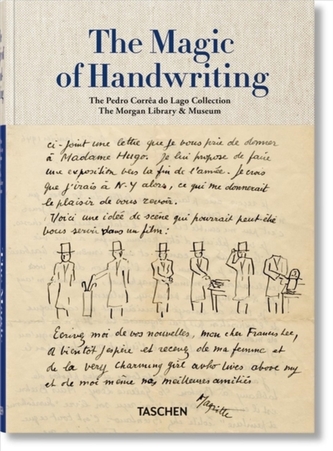 The Magic
of Handwriting
The Pedro Corrêa do Lago Collection
The Morgan Library & Museum
ci-joint une lettre que je vous prie de donner
à Madame Hugo. Je lui propose de faire
une exposition vers la fin de l'année. Je crois
que j'irais à N-Y alors, ce qui me donnerait
le plaisir de vous revoir.
Voici une idée de scène qui pourrait peut-être
vous servir dans un film:
Ecrivez moi de vos nouvelles, mon cher
A bientôt j'espère et recevez de ma femme et
de la very charming girl who lives above my
et de moi même nos meilleures amitiés
Magritte
TASCHEN